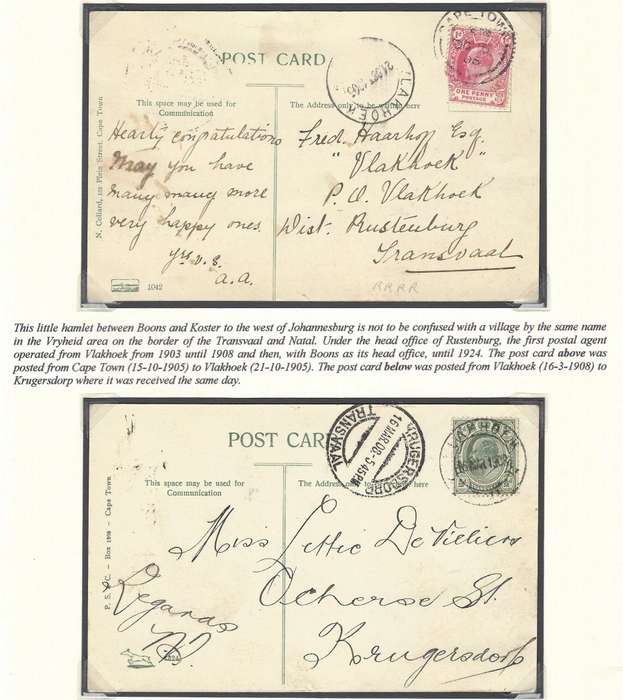 POST CARD
This space may be used for
Communication
The Address only to be written here
CAPE TOWN
VLAKHOEK
21 OC 1905
ONE PENNY
POSTAGE
N. Collard, 122 Plein Street, Cape Town
Hearty congratulations
May you have
many many more
very happy ones.
yrs v. s.
a.a.
Fred. Haarhoff Esq.
"Vlakhoek"
P.O. Vlakhoek
Dist. Rustenburg
Transvaal
1042
RRRR
This little hamlet between Boons and Koster to the west of Johannesburg is not to be confused with a village by the same name
in the Vryheid area on the border of the Transvaal and Natal. Under the head office of Rustenburg, the first postal agent
operated from Vlakhoek from 1903 until 1908 and then, with Boons as its head office, until 1924. The post card above was
posted from Cape Town (15-10-1905) to Vlakhoek (21-10-1905). The post card below was posted from Vlakhoek (16-3-1908) to
Krugersdorp where it was received the same day.
POST CARD
KRUGERSDORP
16 MAR 08 - 5.45 PM
TRANSVAAL
VLAKHOEK
This space may be used for
Communication
written here
P. S. & C. - Box 1898 - Cape Town
Miss Lettie De Villiers
Ocherse St.
Krugersdorp
Regards